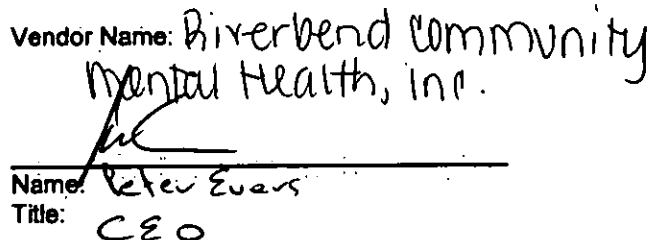 Vendor Name: Riverbend Community
Mental Health, inc.
Name: Peter Evers
Title: CEO